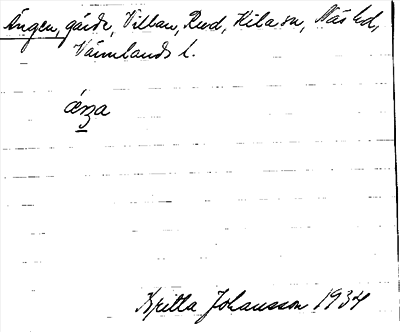 Ängen, gårde, Villan, Rud, Hilla sn, Näs hd,
Värmlands l.
ænza
Britta Johansson 1934